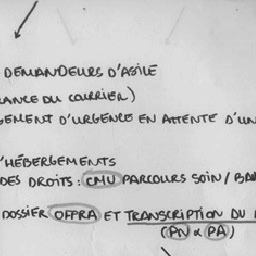 DEMANDEURS D'ASILE
ANCE DU COURRIER)
GEMENT D'URGENCE EN ATTENTE D'UN
'HÉBERGEMENTS
DES DROITS : CMU PARCOURS SOIN / BAN
DOSSIER OFPRA ET TRANSCRIPTION DU
(PN & PA)